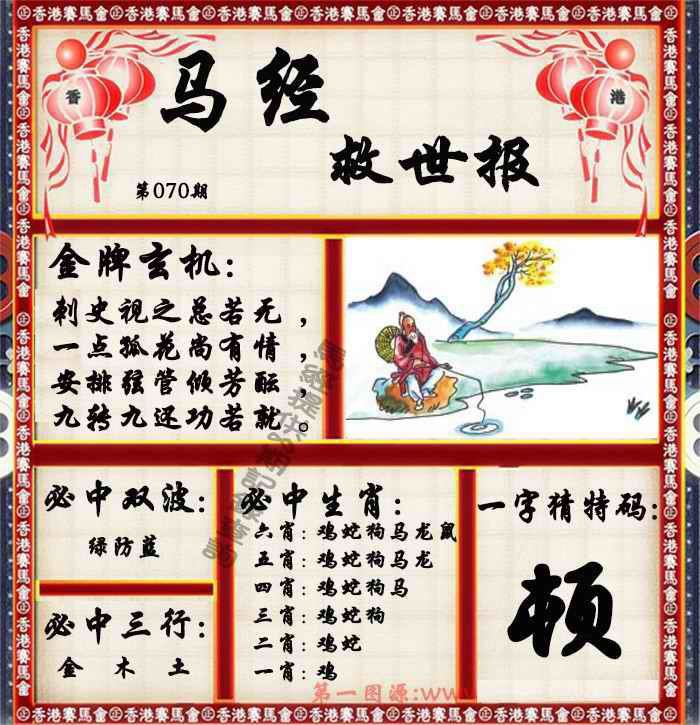 香港賽馬會㊣香港賽馬會㊣香港賽馬會㊣香港賽馬會㊣香港賽馬會㊣香港賽馬會
香
港
马经
救世报
第070期
金牌玄机:
刺史视之总若无，
一点孤花尚有情，
安排弦管倾芳酝，
九转九还功若就。
必中双波:
绿防蓝
必中三行:
金 木 土
必中生肖:
六肖: 鸡蛇狗马龙鼠
五肖: 鸡蛇狗马龙
四肖: 鸡蛇狗马
三肖: 鸡蛇狗
二肖: 鸡蛇
一肖: 鸡
一字猜特码:
顿
第一图源:www